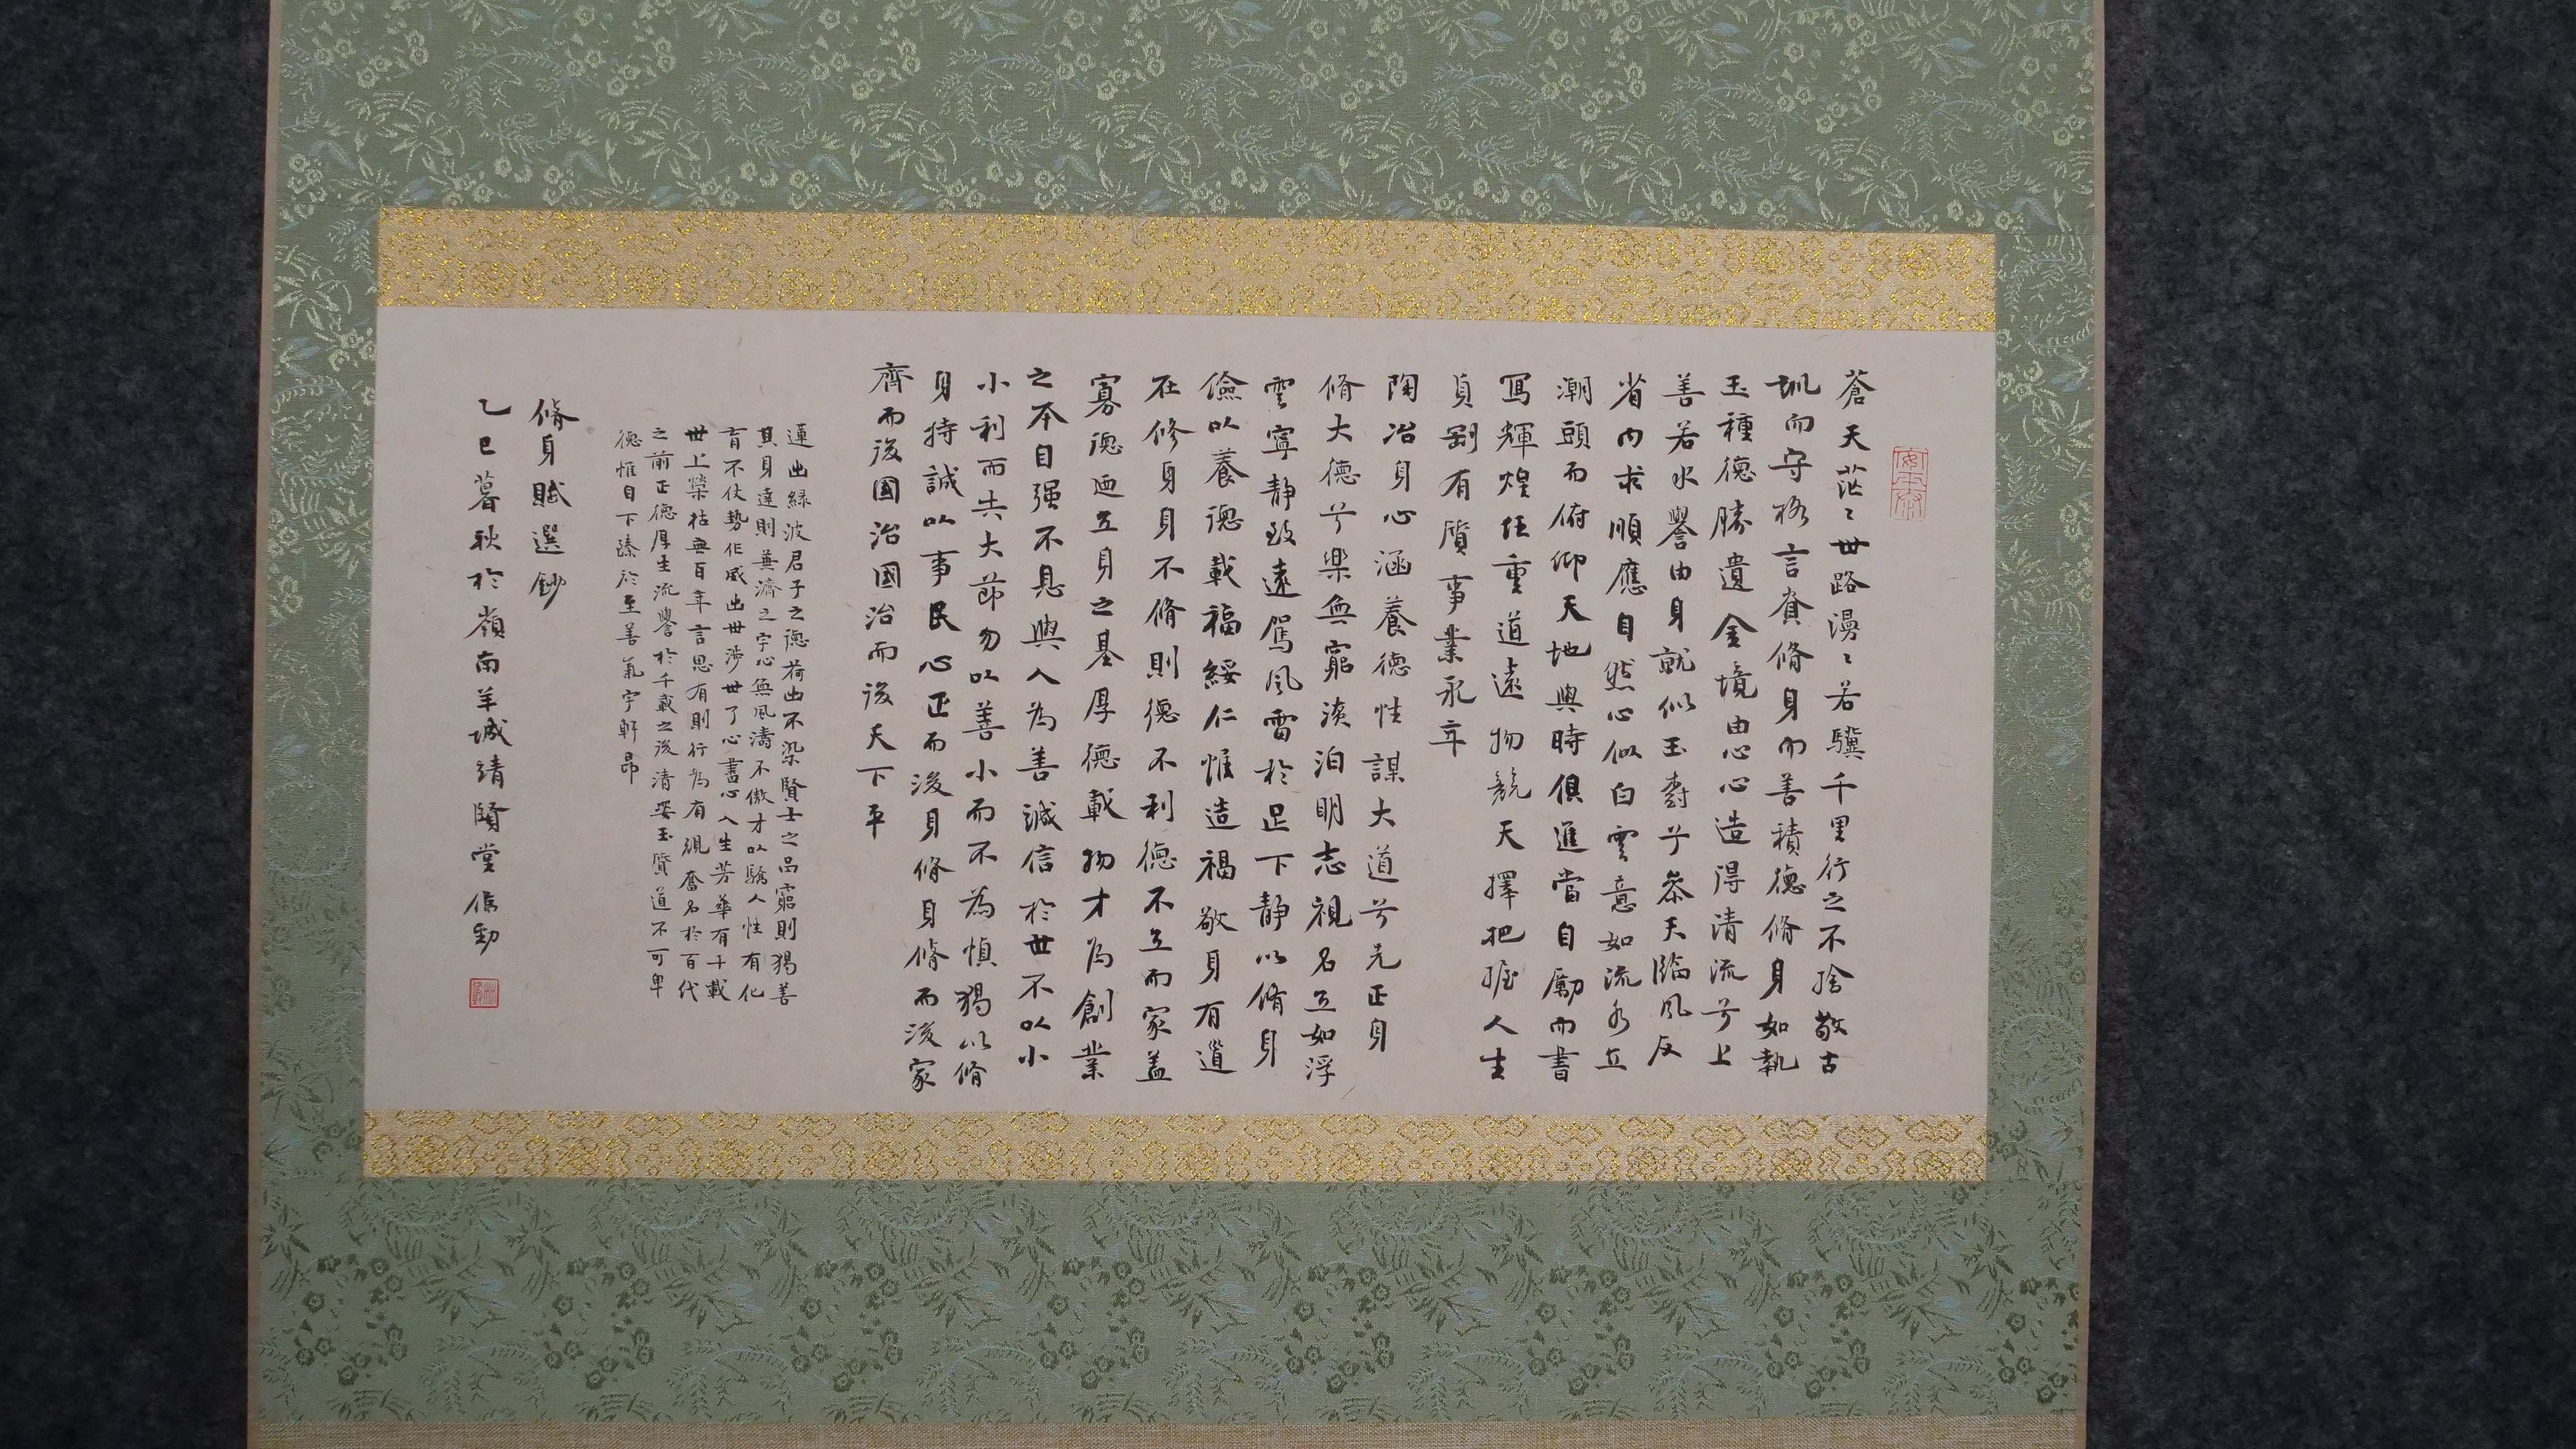 蒼天茫〻世路漫〻若驥千里行之不捨敬古
訓而守格言賁脩身而善積德脩身如執
玉種德勝遺金境由心心造得清流兮上
善若水譽由身就似玉樹兮參天臨風反
省内求順應自然心似白雲意如流水立
潮頭而俯仰天地與時俱進當自勵而書
寫輝煌任重道遠物競天擇把握人生
貞剛有質事業永年
陶冶身心涵養德性謀大道兮先正身
脩大德兮樂無窮淡泊明志視名立如浮
雲寧靜致遠駕風雷於足下靜以脩身
儉以養德載福綏仁惟造福敬身有道
在修身身不脩則德不利德不立而家蓋
寡德迺立身之基厚德載物才為創業
之本自强不息與人為善誠信於世不以小
小利而失大節勿以善小而不為慎獨以脩
身持誠以事民心正而後身脩身脩而後家
齊而後國治國治而後天下平
蓮出緑波君子之德荷出不染賢士之品窮則獨善
其身達則兼濟之宇心無風濤不傲才以驕人性有化
育不仗勢作威出世涉世了心盡心人生芳華有千載
世上榮枯無百年言思有則行為有規奮名於百代
之前正德厚生流譽於千載之後清姿玉質道不可卑
德惟自下臻於至善氣宇軒昂
脩身賦選鈔
乙巳暮秋於嶺南羊城靖賢堂侯勁